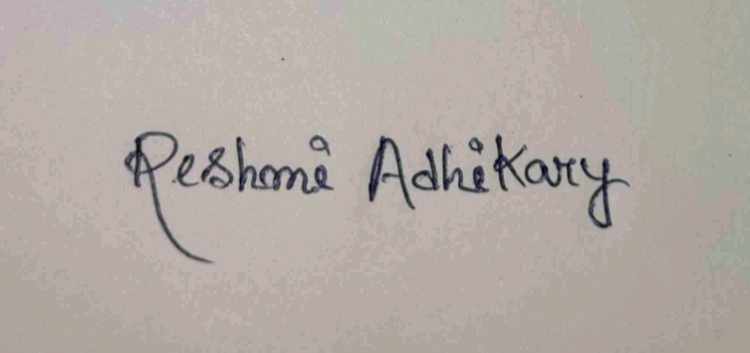 Reshmi Adhikary